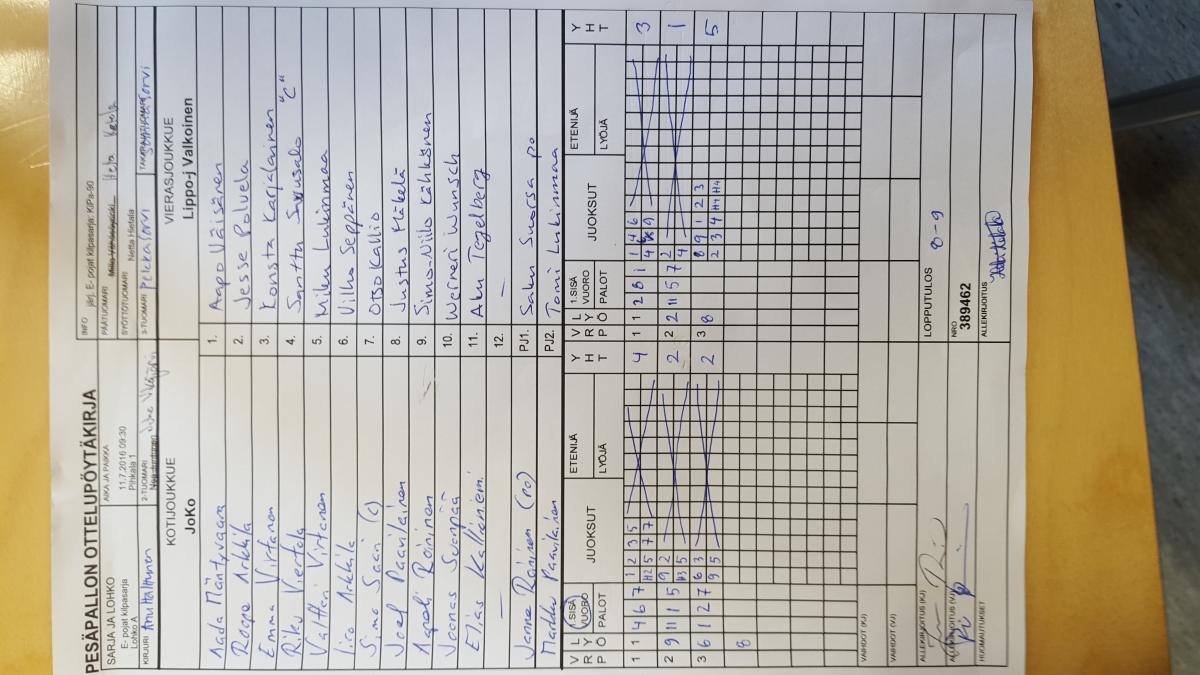 PESÄPALLON OTTELUPÖYTÄKIRJA
SARJA JA LOHKO
E- pojat kilpasarja
Lohko A
AIKA JA PAIKKA
11.7.2016 09:30
Pihkala 1
INFO järj. E- pojat kilpasarja: KiPa-90
PÄÄTUOMARI Heta Ketola
SYÖTTÖTUOMARI Netta Hietala
KIRJURI Anu Halttunen
2-TUOMARI
3-TUOMARI Pelekasorvi
TAKARAJATUOMARI
KOTIJOUKKUE
JoKo
VIERASJOUKKUE
Lippo-j Valkoinen
Aada Mäntyvaara 1. Aapo Väisänen
Roope Arkkila 2. Jesse Polvela
Emma Virtanen 3. Konsta Karjalainen
Riku Viertola 4. Santtu Suusalo "C"
Valtteri Virtanen 5. Miku Lukinmaa
Iiro Arkkila 6. Vilho Seppänen
Simo Saari (c) 7. Otso Kallio
Joel Paavilainen 8. Justus Mäkelä
Aapeli Roininen 9. Simo-Niilo Kähkönen
Joonas Suonpää 10. Werneri Wunsch
Elias Kallioniemi 11. Aku Tegelberg
— 12. —
Janne Roininen (PO) PJ1. Saku Suorsa po
Markku Paavilainen PJ2. Tomi Lukinmaa
V R P L Y Ö 1.SISÄ VUORO PALOT JUOKSUT ETENIJÄ LYÖJÄ Y H T V R P L Y Ö 1.SISÄ VUORO PALOT JUOKSUT ETENIJÄ LYÖJÄ Y H T
1 1 4 6 7 1 2 3 5 4 1 1 2 8 1 1 4 6 3
H2 5 7 7
2 9 11 1 5 9 2 2 2 2 11 5 7 2 1
H3 5 4
3 6 1 2 7 6 3 2 3 8 8 9 1 2 3 5
9 5 2 3 4 H4 H4
8
VAIHDOT (KJ)
VAIHDOT (VJ)
ALLEKIRJOITUS (KJ)
ALLEKIRJOITUS (VJ)
HUOMAUTUKSET
LOPPUTULOS 8-9
NRO
389462
ALLEKIRJOITUS